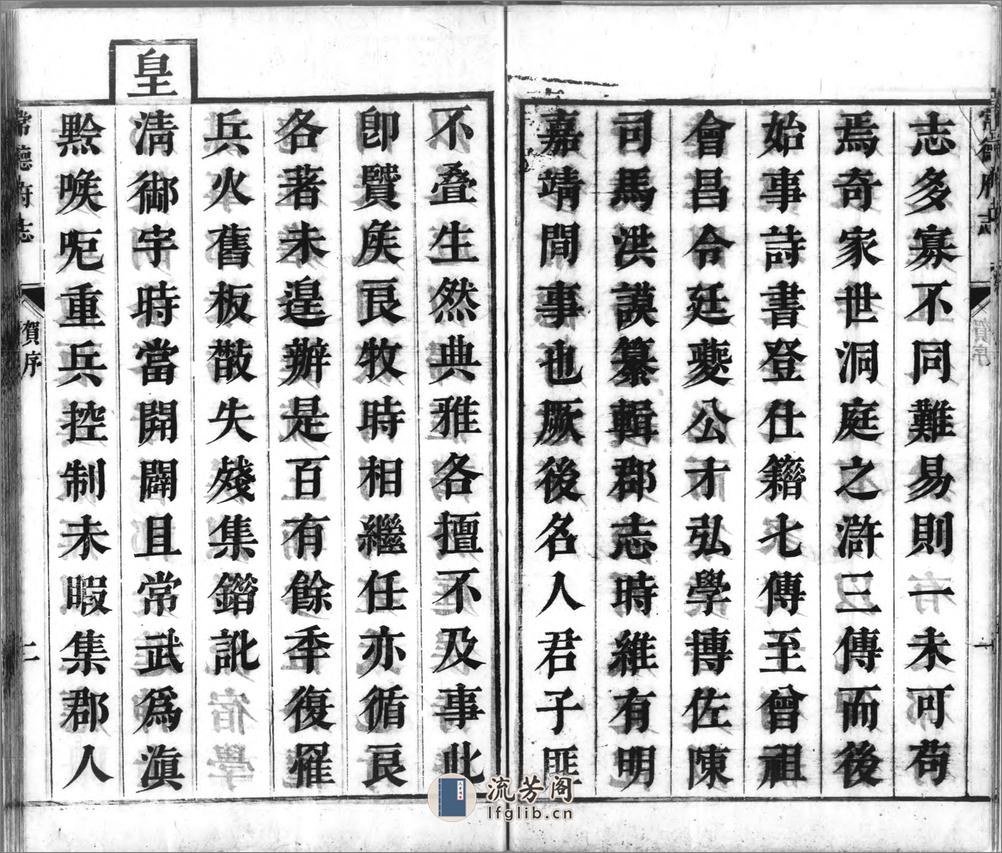 志多寡不同難易則一未可苟
焉奇家世洞庭之滸三傳而後
始事詩書登仕籍七傳至曾祖
會昌令廷夔公才弘學博佐陳
司馬洪謨纂輯郡志時維有明
嘉靖間事也厥後名人君子匪
不叠生然典雅各擅不及事此
卽賢矦良牧時相繼任亦循良
各著未遑辦是百有餘秊復罹
兵火舊板散失殘集鐕訛
皇
淸御宇時當開闢且常武爲滇
黔喉咽重兵控制未暇集郡人
常德府志
賀序
二
流芳阁
lfglib.cn